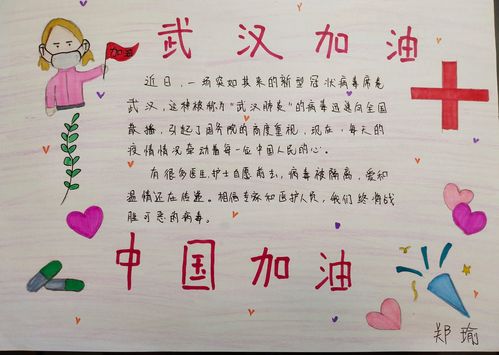 武汉加油
加油
近日，一场突如其来的新型冠状病毒席卷
武汉，这种被称为“武汉肺炎”的病毒迅速向全国
散播，引起了国务院的高度重视，现在，每天的
疫情情况牵动着每一位中国人民的心。
有很多医生，护士自愿前去，病毒被隔离，爱和
温情还在传递。相信专家和医护人员，我们终将战
胜可恶的病毒。
中国加油
郑瑜